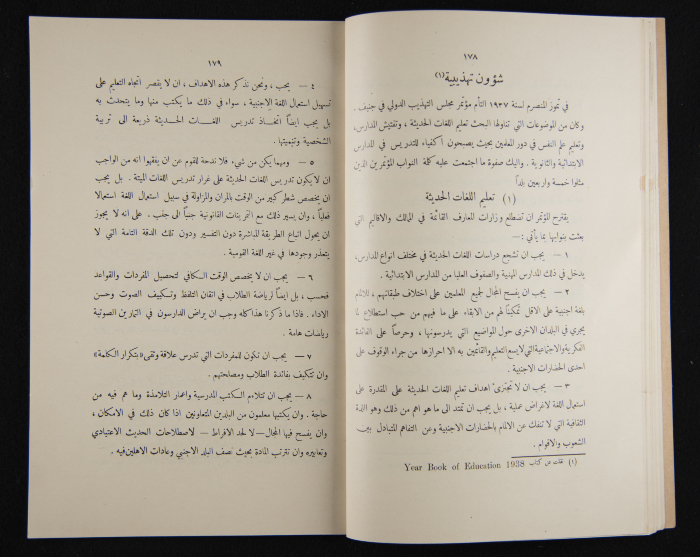 ١٧٨
شؤون تهذيبية (١)
في تموز المنصرم لسنة ١٩٣٧ التأم مؤتمر مجلس التهذيب الدولي في جنيف .
وكان من الموضوعات التي تناولها البحث تعليم اللغات الحديثة ، وتفتيش المدارس،
وتعليم علم النفس في دور المعلمين بحيث يصبحون أكفياء للتدريس في المدارس
الابتدائية والثانوية . واليك صفوة ما اجتمعت عليه كلمة النواب المؤتمرين الذين
مثلوا خمسة واربعين بلداً
(١) تعليم اللغات الحديثة
يقترح المؤتمر ان تضطلع وزارات المعارف القائمة في الممالك والاقاليم التي
بعثت بنوابها بما يأتي : —
١ — يجب ان تشجع دراسات اللغات الحديثة في مختلف انواع المدارس،
يدخل في ذلك المدارس المهنية والصفوف العليا من المدارس الابتدائية .
٢ — يجب ان يفسح المجال لجميع المعلمين على اختلاف طبقاتهم ، للالمام
بلغة اجنبية على الاقل تمكيناً لهم من الابقاء على ما فيهم من حب استطلاع لما
يجري في البلدان الاخرى حول المواضيع التي يدرسونها ، وحرصاً على الفائدة
الفكرية والاجتماعية التي لا يسع التعليم والقائمين به الا احرازها من جراء الوقوف على
احدى الحضارات الاجنبية .
٣ — يجب ان لا تجتزئ اهداف تعليم اللغات الحديثة على المقدرة على
استعمال اللغة لاغراض عملية ، بل يجب ان تمتد الى ما هو اهم من ذلك وهو اللذة
الثقافية التي لا تنفك عن الالمام بالحضارات الاجنبية وعن التفاهم المتبادل بين
الشعوب والاقوام .
(١) نقلت عن كتاب Year Book of Education 1938
١٧٩
٤ — يجب ، ونحن نذكر هذه الاهداف ، ان لا يقصر اتجاه التعليم على
تسهيل استعمال اللغة الاجنبية ، سواء في ذلك ما يكتب منها وما يتحدث به
بل يجب ايضاً اتخاذ تدريس اللغات الحديثة ذريعة الى تربية
الشخصية وتنميتها .
٥ — ومهما يكن من شيء فلا ندحة للقوم عن ان يفقهوا انه من الواجب
ان لا يكون تدريس اللغات الحديثة على غرار تدريس اللغات الميتة . بل يجب
ان يخصص شطر كبير من الوقت بالمران والمزاولة في سبيل استعمال اللغة استعمالا
فعلياً ، وان يسير ذلك مع التمرينات القانونية جنباً الى جنب . على انه لا يجوز
ان يحول اتباع الطريقة المباشرة دون التفسير ودون تلك الدقة التامة التي لا
يتعذر وجودها في غير اللغة القومية .
٦ — يجب ان لا يخصص الوقت الكافي لتحصيل المفردات والقواعد
فحسب ، بل ايضاً لرياضة الطلاب في اتقان التلفظ وتكييف الصوت وحسن
الاداء . فاذا ما ذكرنا هذا كله وجب ان يراض الدارسون في التمارين الصوتية
رياضات هامة .
٧ — يجب ان تكون للمفردات التي تدرس علاقة وثقى «بتكرار الكلمة»
وان تتكيف بفائدة الطلاب ومصلحتهم .
٨ — يجب ان تتلاءم الكتب المدرسية واعمار التلامذة وما هم فيه من
حاجة . وان يكتبها معلمون من البلدين المتعاونين اذا كان ذلك في الامكان ،
وان يفسح فيها المجال — لا لحد الافراط — لاصطلاحات الحديث الاعتيادي
وتعابيره وان تترتب المادة بحيث تصف البلد الاجنبي وعادات الاهلين فيه .